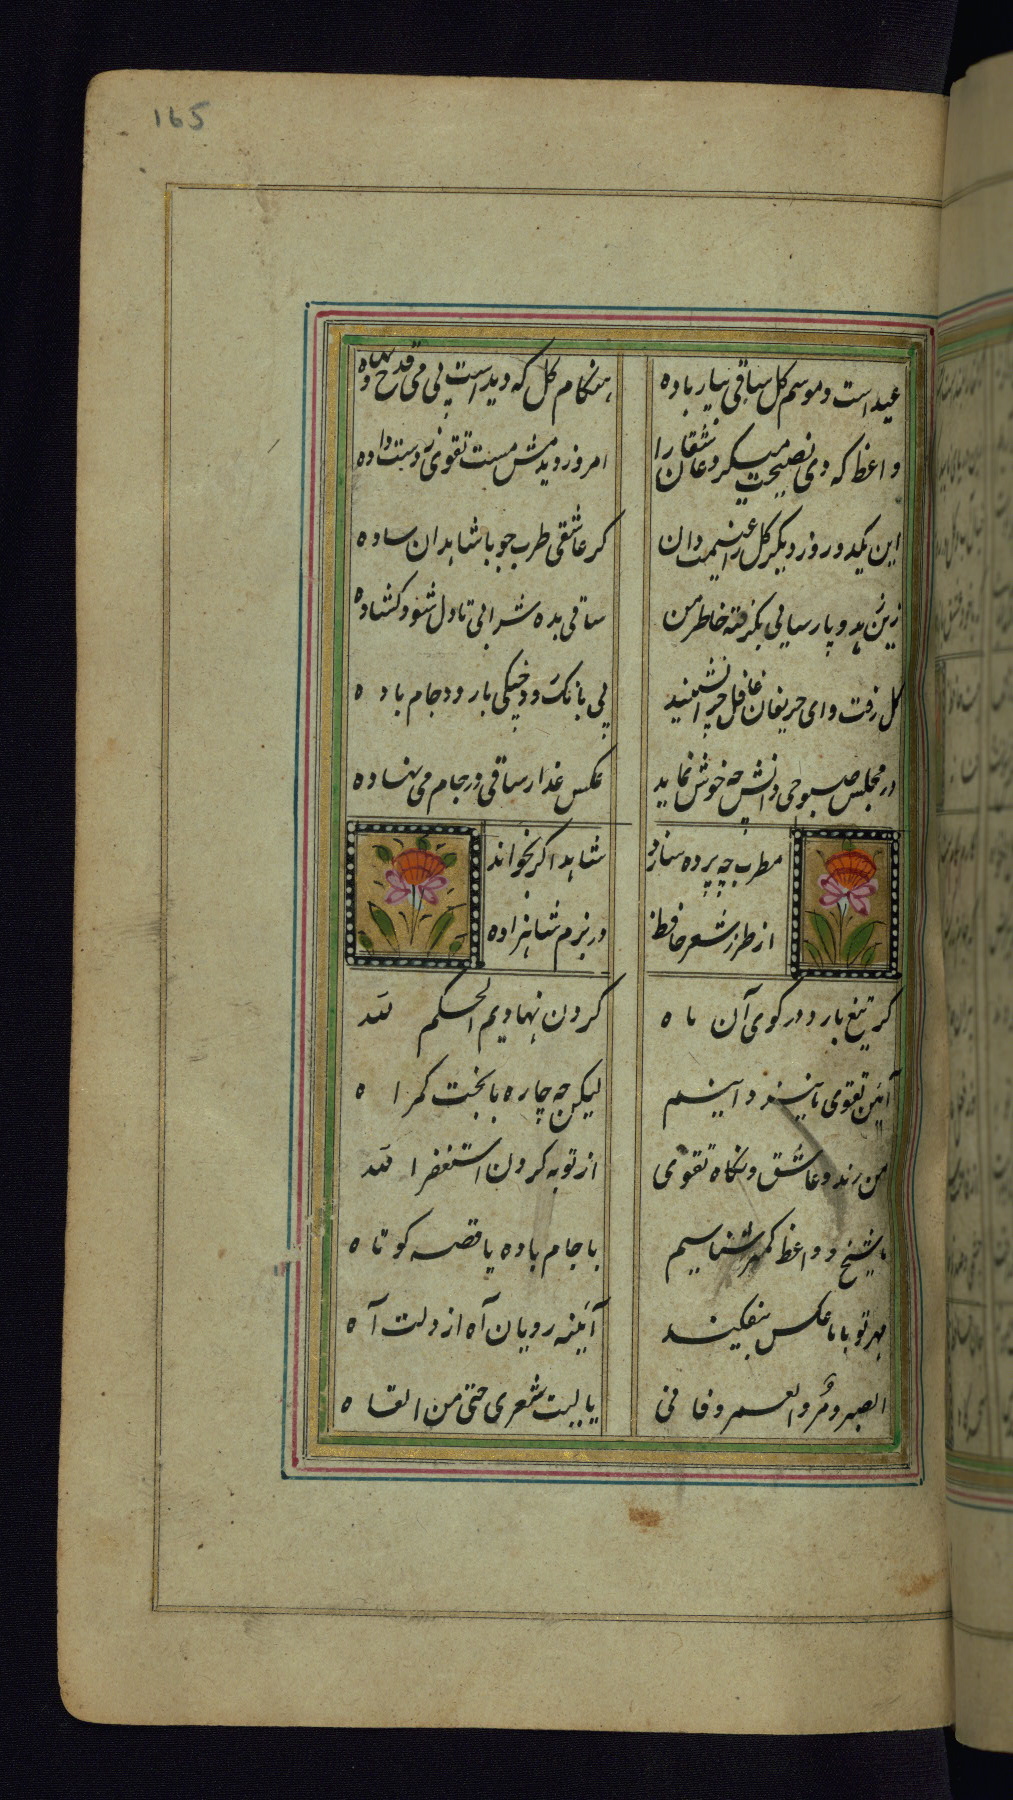 165
عید است و موسم کل ساقی بیار باده هنکام کل که دید است بی می قدح نهاده
واعظ که دی نصیحت میکرد عاشقان را امروز دیدمش مست تقوی بدست داده
این یکدو روز دیکر کل را غنیمت دان کر عاشقی طرب جو با شاهدان ساده
زین زهد و پارسایی بکرفته خاطر من ساقی بده شرابی تا دل شود کشاده
کل رفت وای حریفان غافل چرا نشینید بی بانک رود چنکی بار و دجام باده
در مجلس صبوحی دانش چه خوش نماید عکس عذار ساقی در جام می نهاده
مطرب چه پرده سازد شاهد اکر بخواند
از طرز شعر حافظ در بزم شاهزاده
کر تیغ بارد در کوی آن ماه کردن نهادیم الحکم لله
آیین تقوی ما نیز دانیم لیکن چه چاره با بخت کمراه
من رند و عاشق و نکاه تقوی از توبه کردن استغفرالله
ما شیخ و واعظ کمتر شناسیم با جام باده یا قصه کوتاه
مهر تو با ما عکس بنفکیند آیینه رویان آه از دلت آه
الصبر و مُر و العمر و فانی یا لیت شعری حتی من القاه